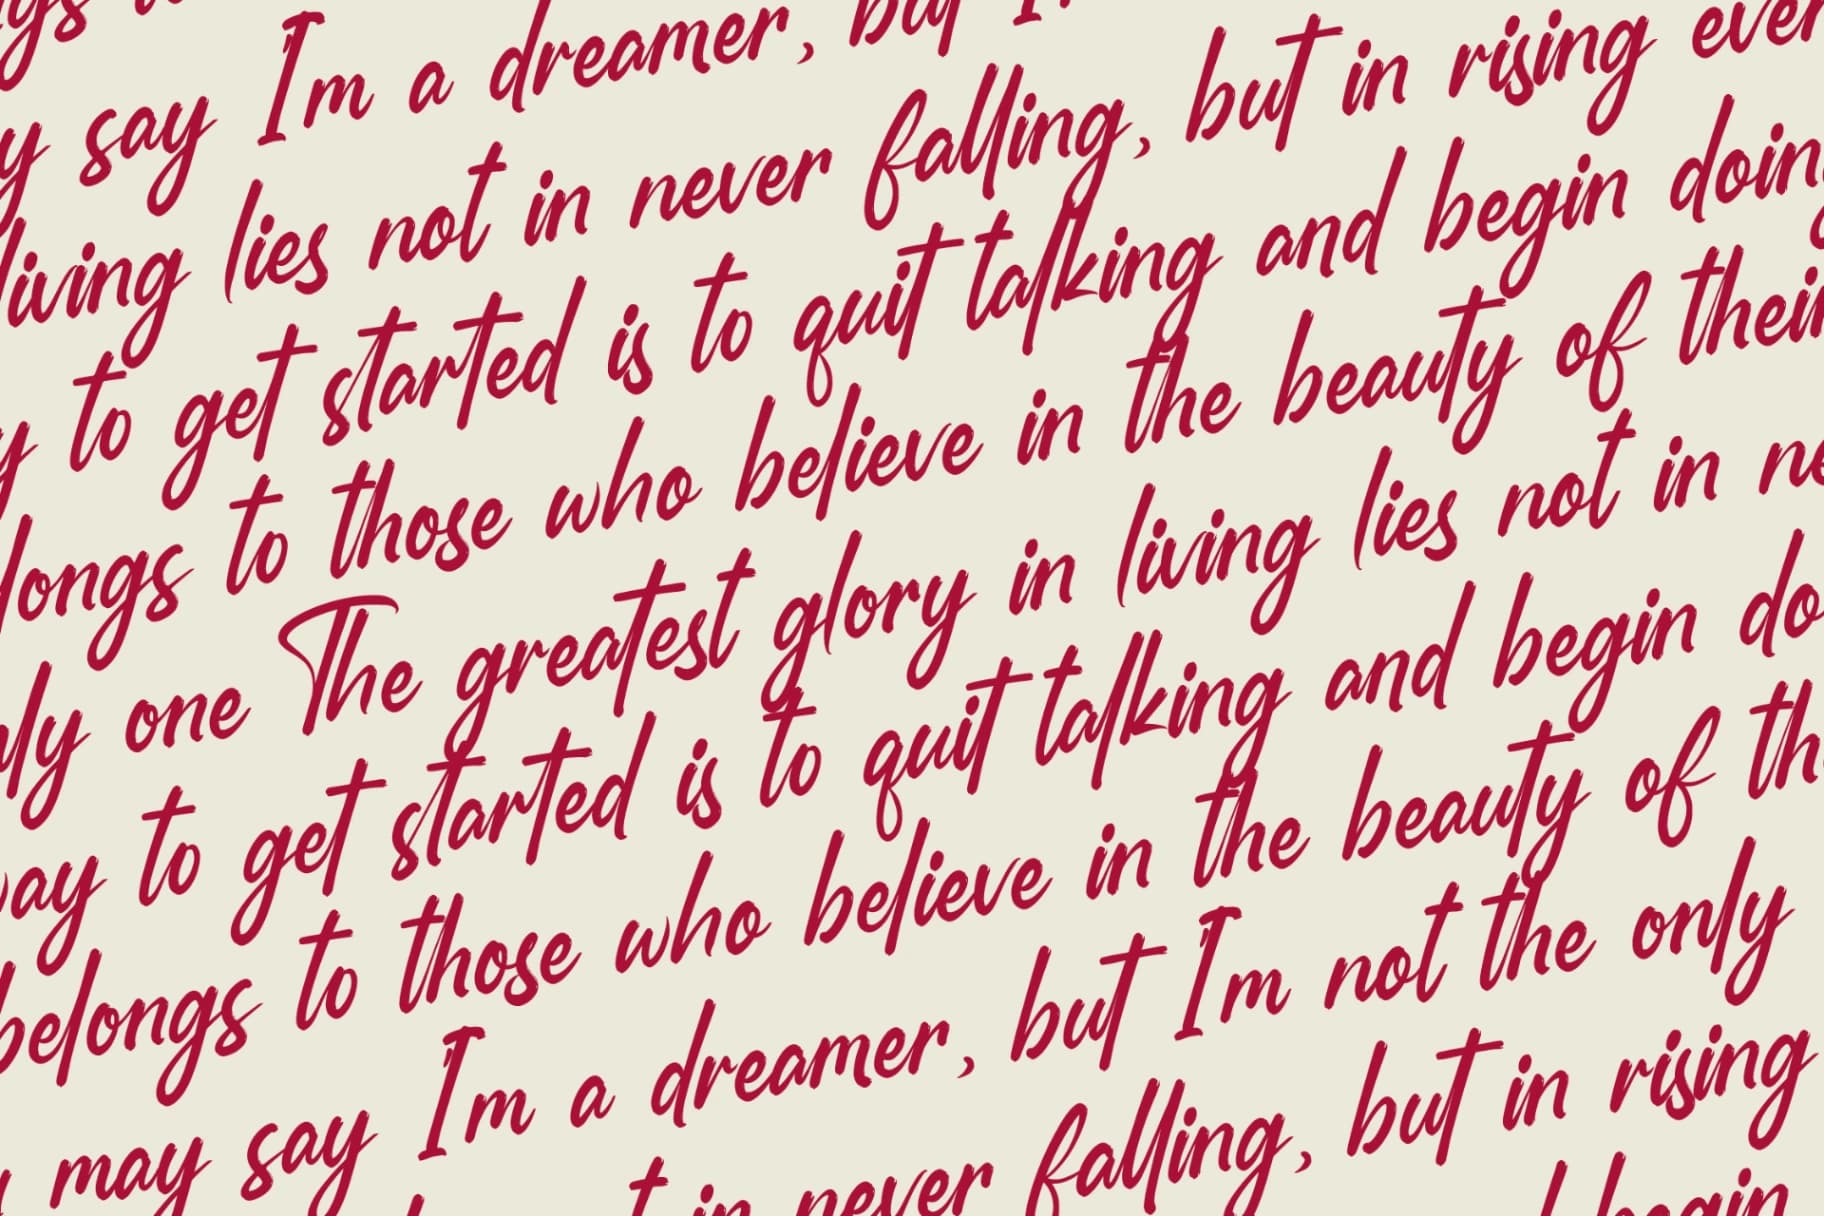 say Im a dreamer, but I
living lies not in never falling, but in rising ever
to get started is to quit talking and begin doing
longs to those who believe in the beauty of their
only one The greatest glory in living lies not in ne
way to get started is to quit talking and begin do
belongs to those who believe in the beauty of th
may say Im a dreamer, but Im not the only
t in never falling, but in rising
begin